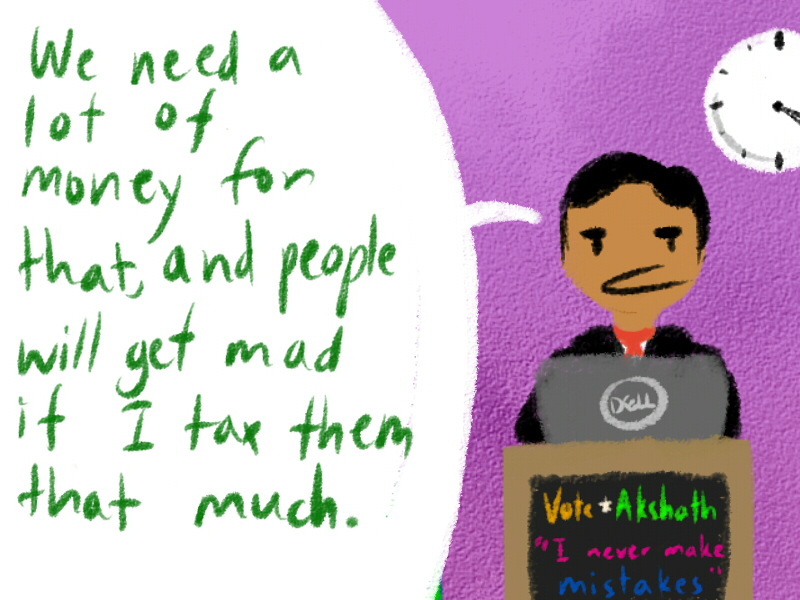 We need a
lot of
money for
that, and people
will get mad
if I tax them
that much.
DELL
Vote * Akshath
"I never make
mistakes"